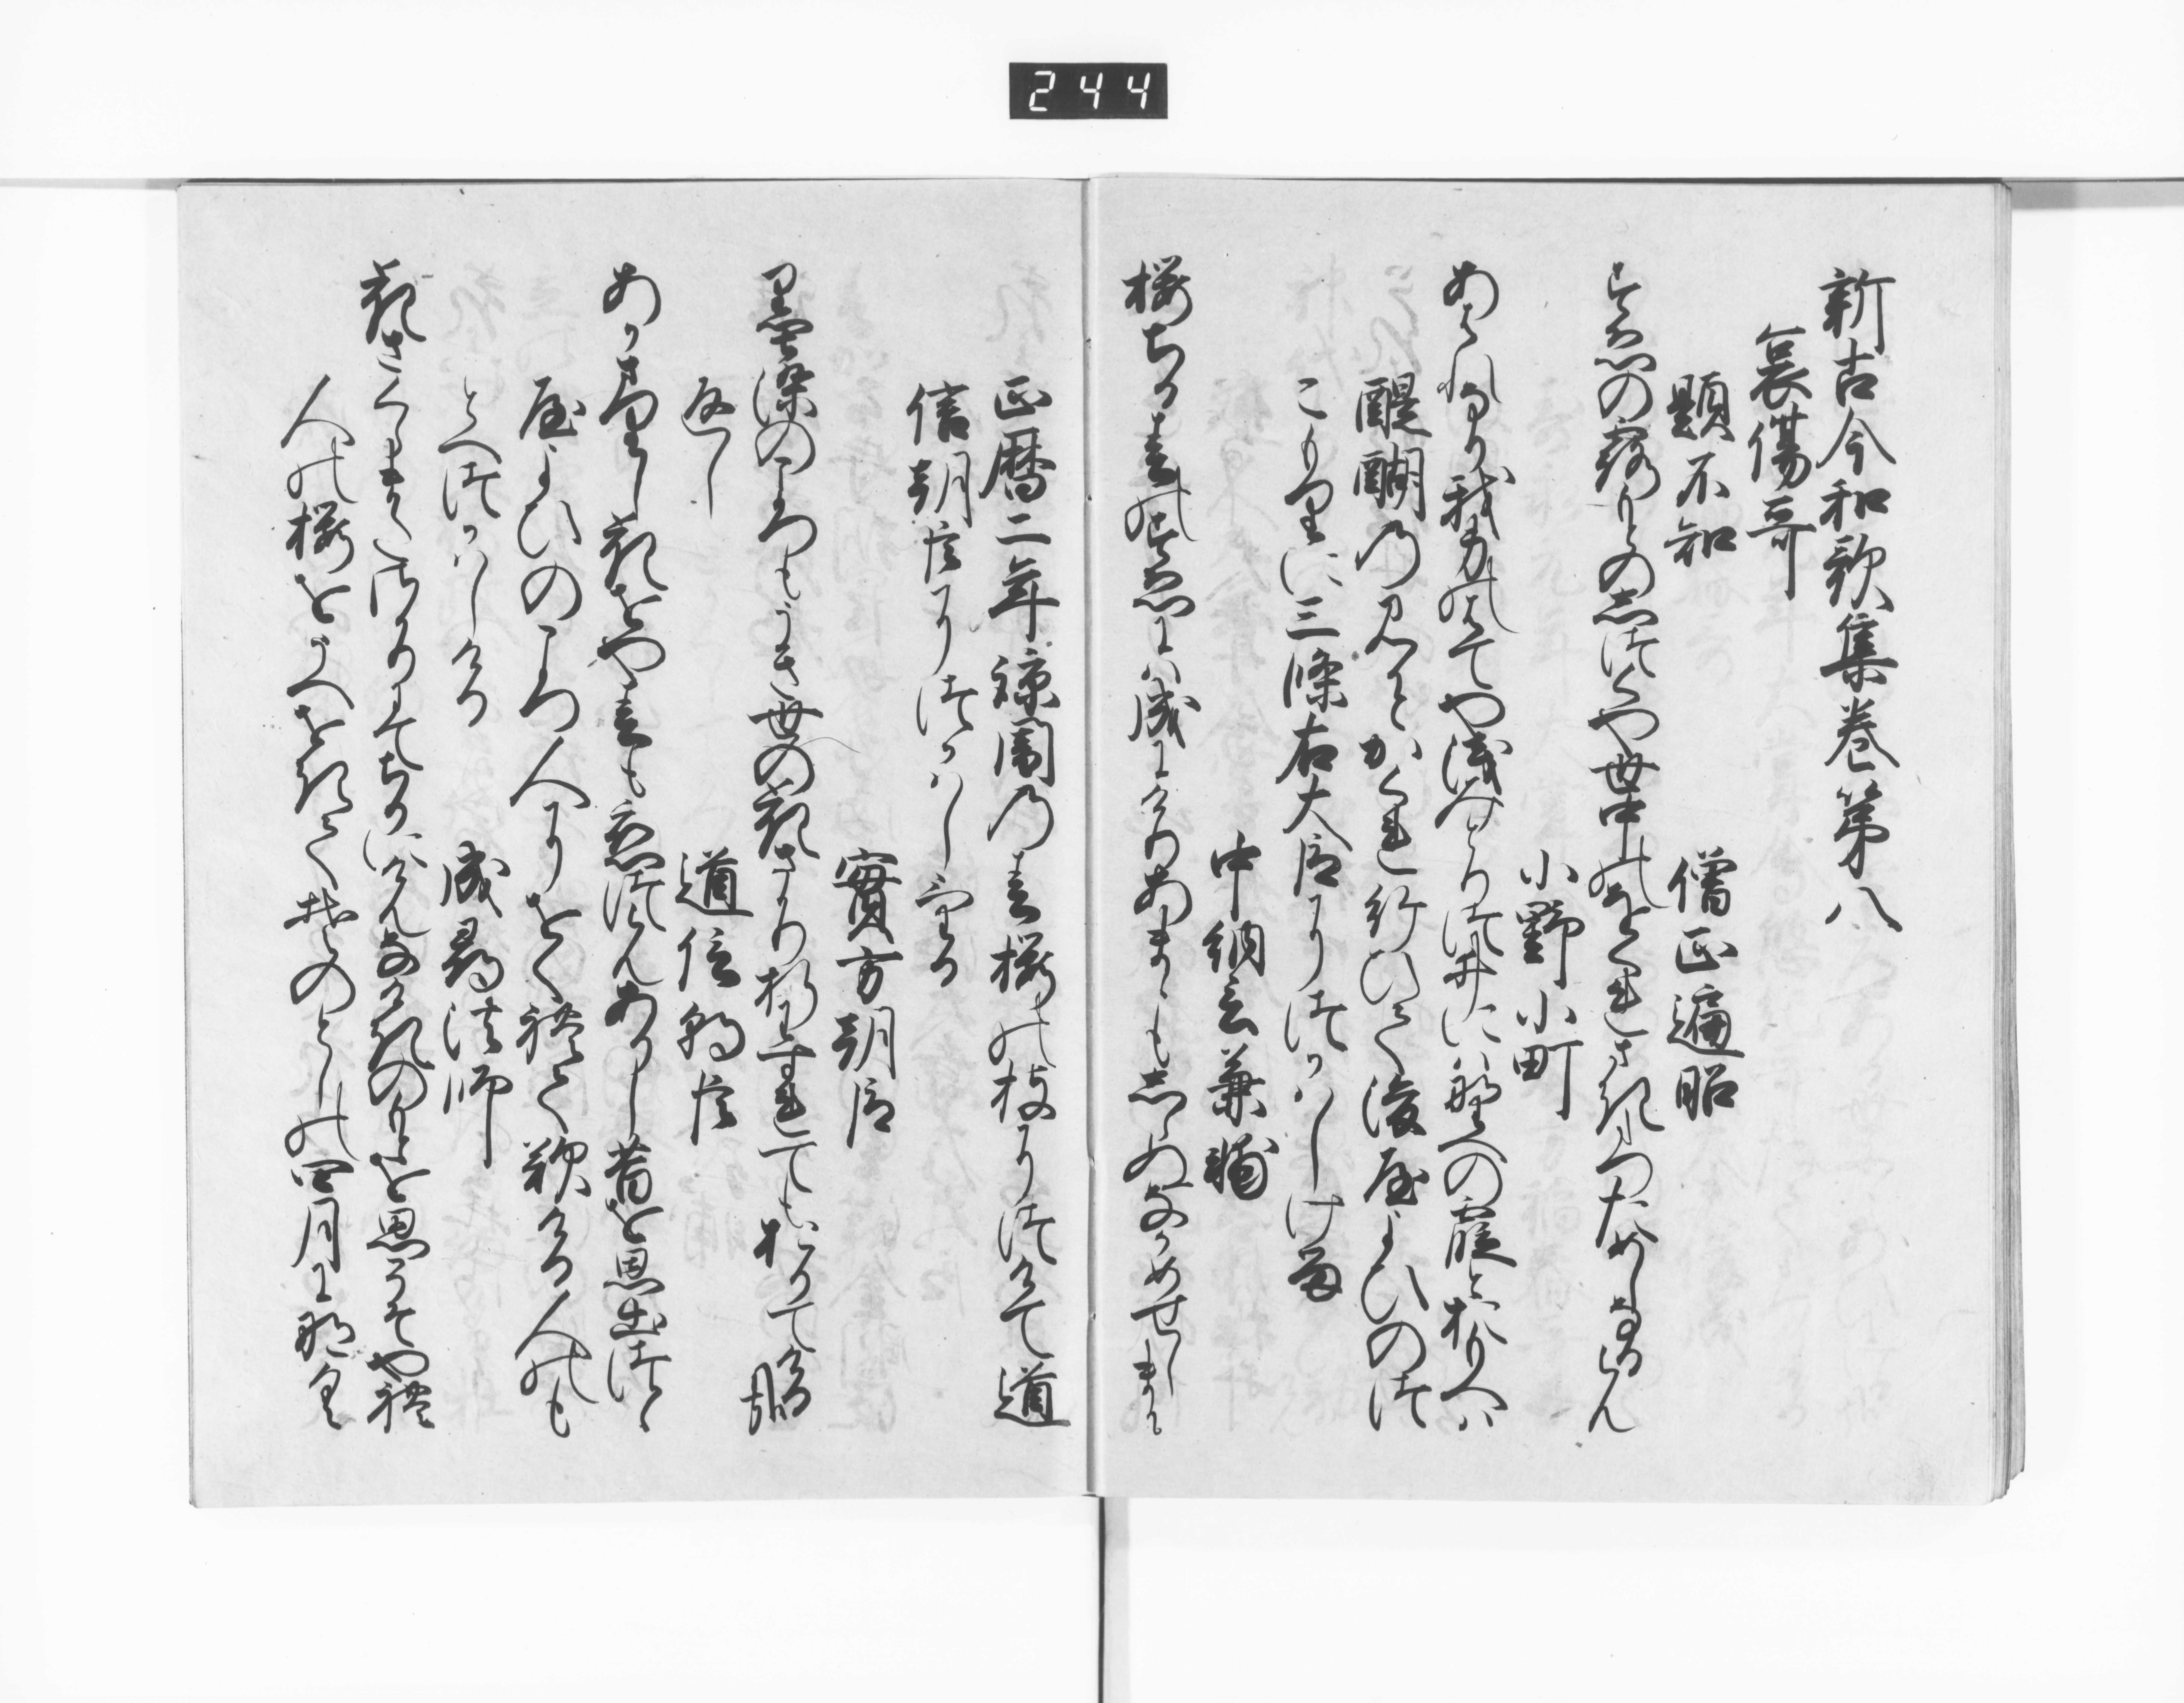 244
新古今和歌集巻第八
哀傷哥
題不知
僧正遍昭
すゑの露もとのしつくや世中のをくれさきたつためしなるらん
小野小町
あはれなり我身のはてや浅みとりつゐには野へのかすみと思へは
醍醐のみかとかくれ給ひて後やよひのつ
こもりに三條右大臣につかはしける
中納言兼輔
桜ちる春の末には成にけりあまゝもしらぬなかめせしまに
正暦二年諒闇の春桜の枝につけて道
信朝臣につかはしける
實方朝臣
墨染のころもうき世の花さかりおりわすれてもおりてける哉
返し
道信朝臣
あかさりし花をや春も恋つらんありし昔を思出つゝ
やよひのころ人にをくれて歎ける人のも
とへつかはしける
成尋法師
花さくらまたさかりにてちりにけんなけきのもとを思こそやれ
人の桜をうへをきてそのとしの四月になく